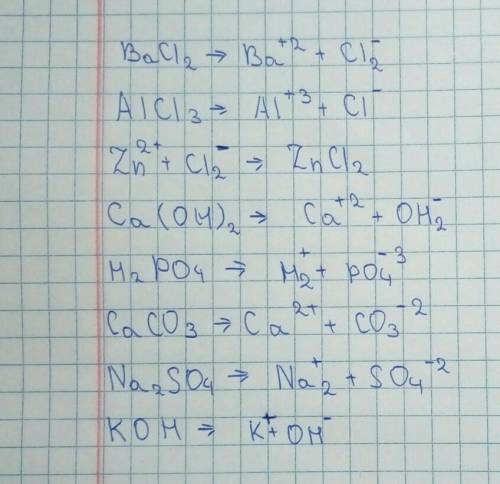 BaCl₂ → Ba⁺² + Cl₂⁻
AlCl₃ → Al⁺³ + Cl⁻
Zn²⁺ + Cl₂⁻ → ZnCl₂
Ca(OH)₂ → Ca⁺² + OH₂⁻
H₂PO₄ → H₂⁺ + PO₄⁻³
CaCO₃ → Ca²⁺ + CO₃⁻²
Na₂SO₄ → Na₂⁺ + SO₄⁻²
KOH → K⁺ + OH⁻